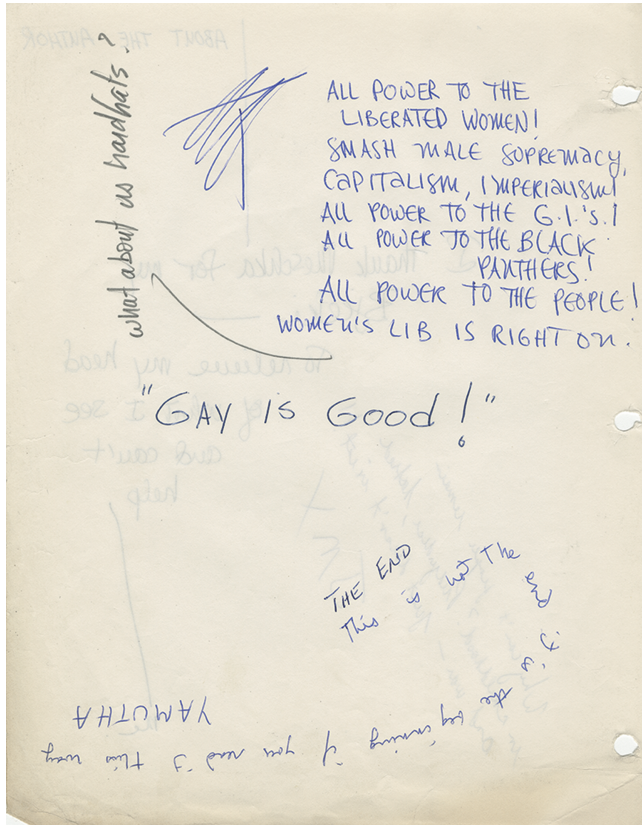 what about us hardhats?
ALL POWER TO THE
LIBERATED WOMEN!
SMASH MALE SUPREMACY,
CAPITALISM, IMPERIALISM!
ALL POWER TO THE G.I.'S.!
ALL POWER TO THE BLACK
PANTHERS!
ALL POWER TO THE PEOPLE!
WOMEN'S LIB IS RIGHT ON.
"GAY IS GOOD!"
THE END
This is not The End it is the beginning if you read it this way
YAMUTHA
ABOUT THE AUTHOR
I Thank
for my
To relieve my head
of
I see
and can't
help